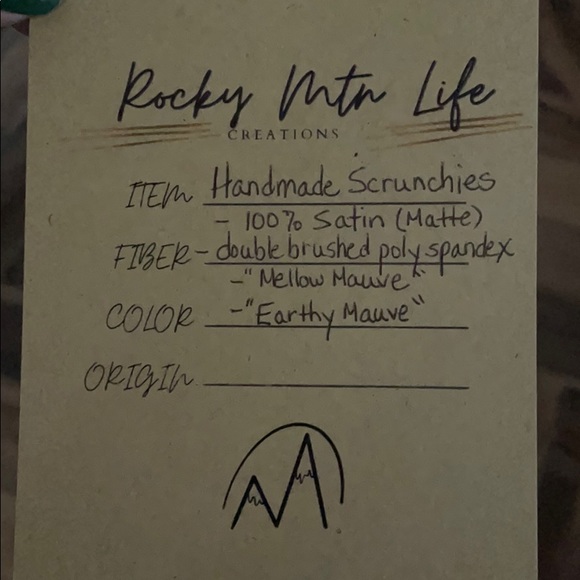 Rocky Mtn Life
CREATIONS
ITEM Handmade Scrunchies
- 100% Satin (Matte)
FIBER - double brushed poly spandex
-"Mellow Mauve"
COLOR -"Earthy Mauve"
ORIGIN